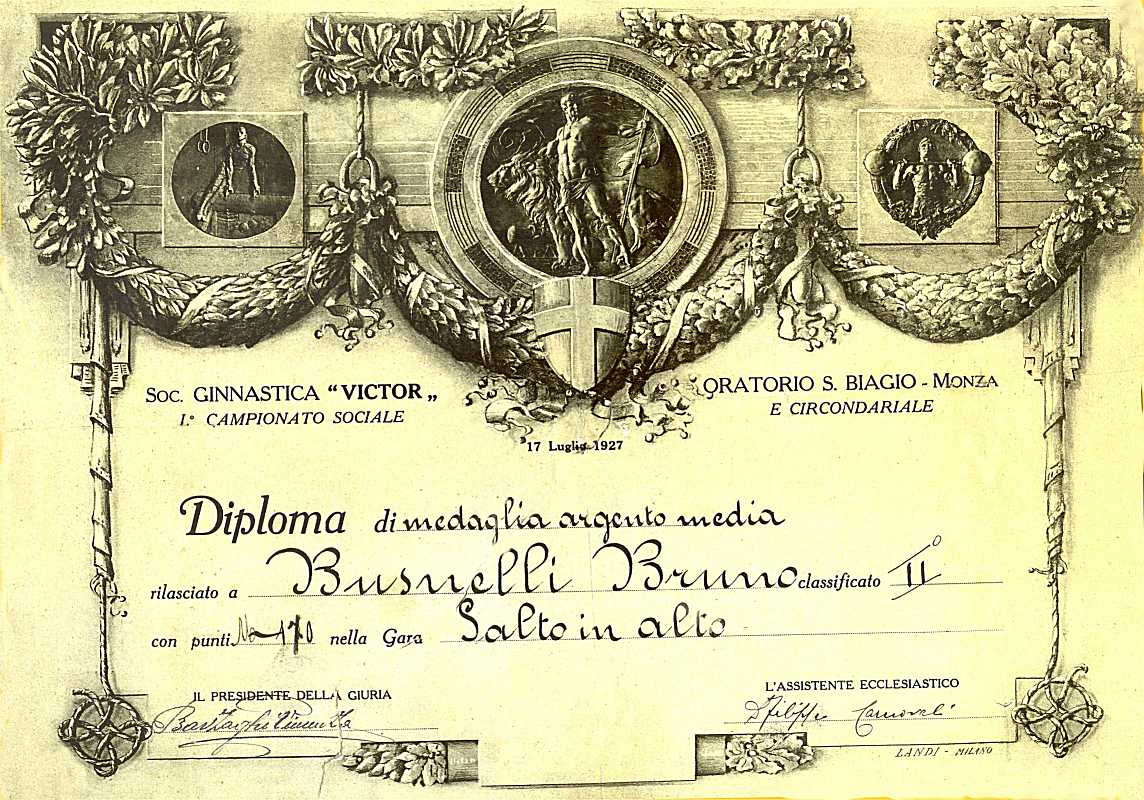 Soc. GINNASTICA "VICTOR„
I.° CAMPIONATO SOCIALE
ORATORIO S. BIAGIO - MONZA
E CIRCONDARIALE
17 Luglio 1927
Diploma di medaglia argento media
rilasciato a Busnelli Bruno classificato II°
con punti 170 nella Gara Salto in alto
IL PRESIDENTE DELLA GIURIA
L'ASSISTENTE ECCLESIASTICO
LANDI - MILANO